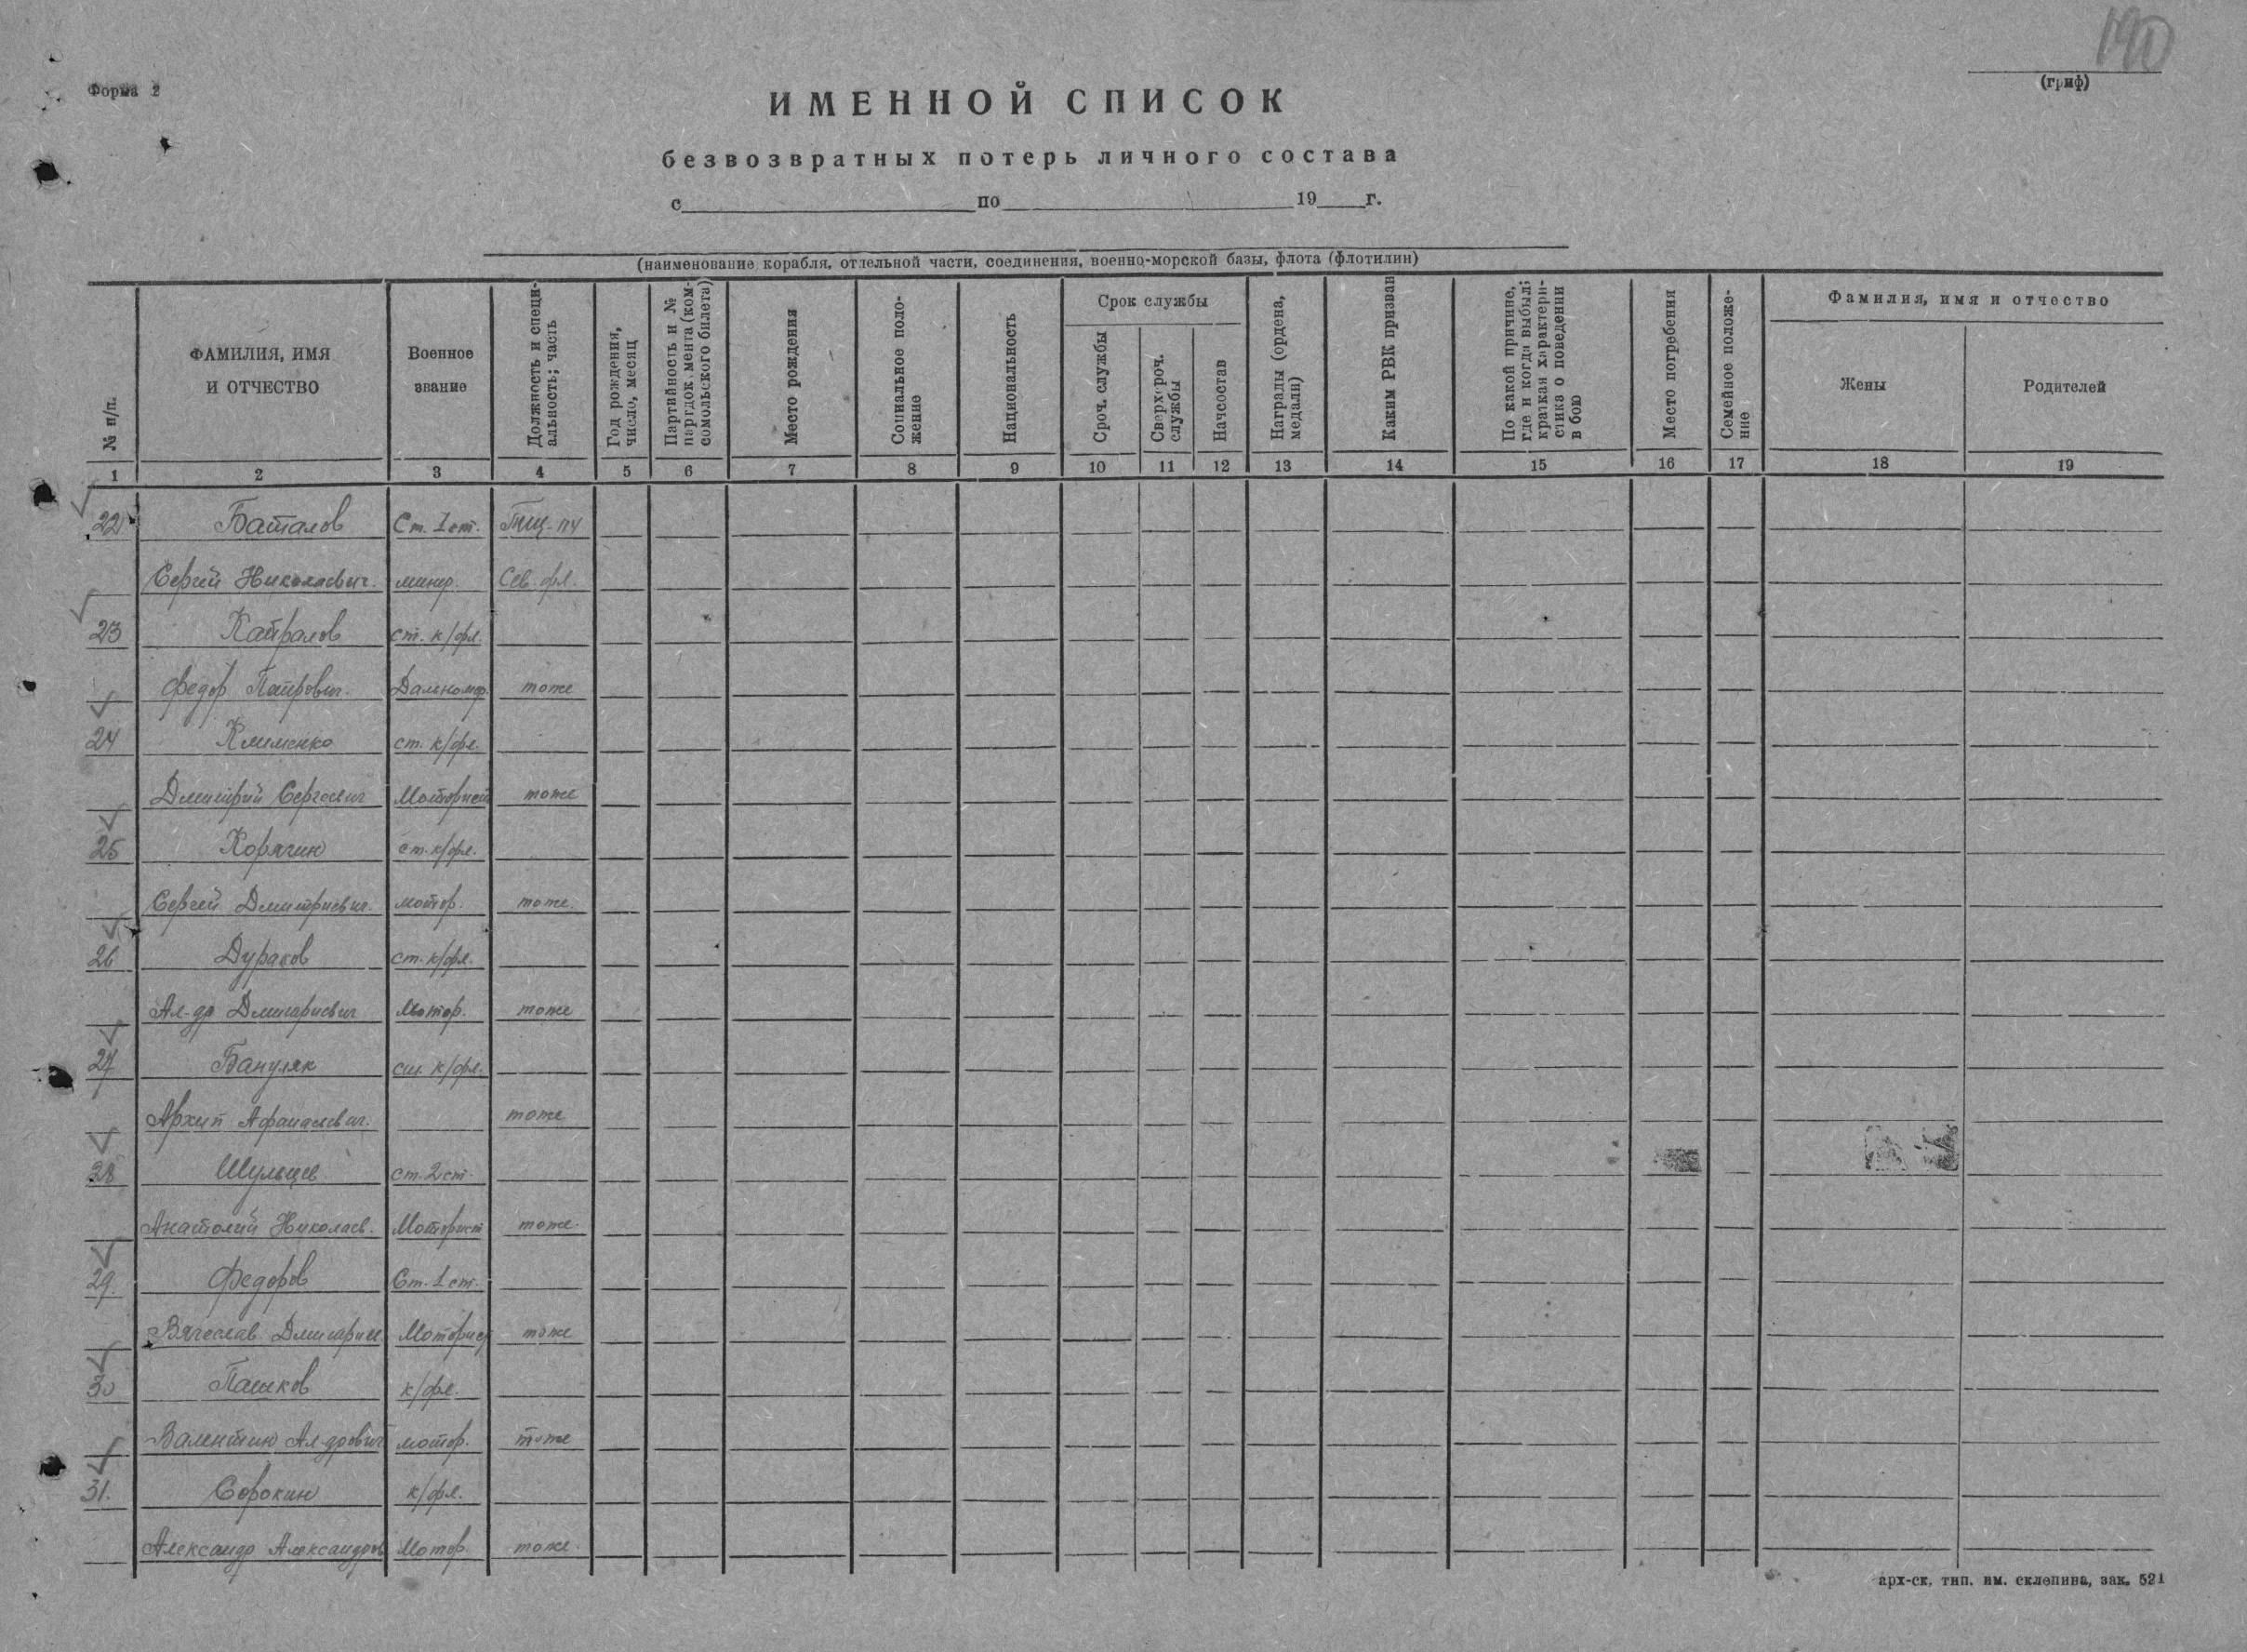 190
Форма 2
(гриф)
ИМЕННОЙ СПИСОК
безвозвратных потерь личного состава
с по 19 г.
(наименование корабля, отдельной части, соединения, военно-морской базы, флота (флотилии)
№ п/п.
ФАМИЛИЯ, ИМЯ И ОТЧЕСТВО
Военное звание
Должность и специальность; часть
Год рождения, число, месяц
Партийность и № партдокумента (комсомольского билета)
Место рождения
Социальное положение
Национальность
Срок службы
Сроч. службы
Сверхсроч. службы
Начсостав
Награды (ордена, медали)
Каким РВК призван
По какой причине, где и когда выбыл; краткая характеристика о поведении в бою
Место погребения
Семейное положение
Фамилия, имя и отчество
Жены
Родителей
1 2 3 4 5 6 7 8 9 10 11 12 13 14 15 16 17 18 19
22 Баталов Ст. 1 ст. ТЩ-
Сергей Николаевич. минер. Сев. фл.
23 Кайралов ст. к/фл.
Федор Петрович. Дальномер. тоже
24 Клименко ст. к/фл.
Дмитрий Сергеевич Моторист тоже
25 Корягин ст. к/фл.
Сергей Дмитриевич. мотор. тоже.
26 Дураков ст. к/фл.
Ал-др Дмитриевич Мотор. тоже
27 Бануляк ст. к/фл.
Архип Афанасевич. тоже
28 Шульцев ст. 2 ст.
Анатолий Николаев. Моторист тоже.
29. Федоров Ст. 1 ст.
Вячеслав Дмитриев Моторист тоже
30 Пашков к/фл.
Валентин Ал-дрович мотор. тоже
31. Сорокин к/фл.
Александр Александров Мотор. тоже.
арх-ск, тип. им. склепина, зак. 521